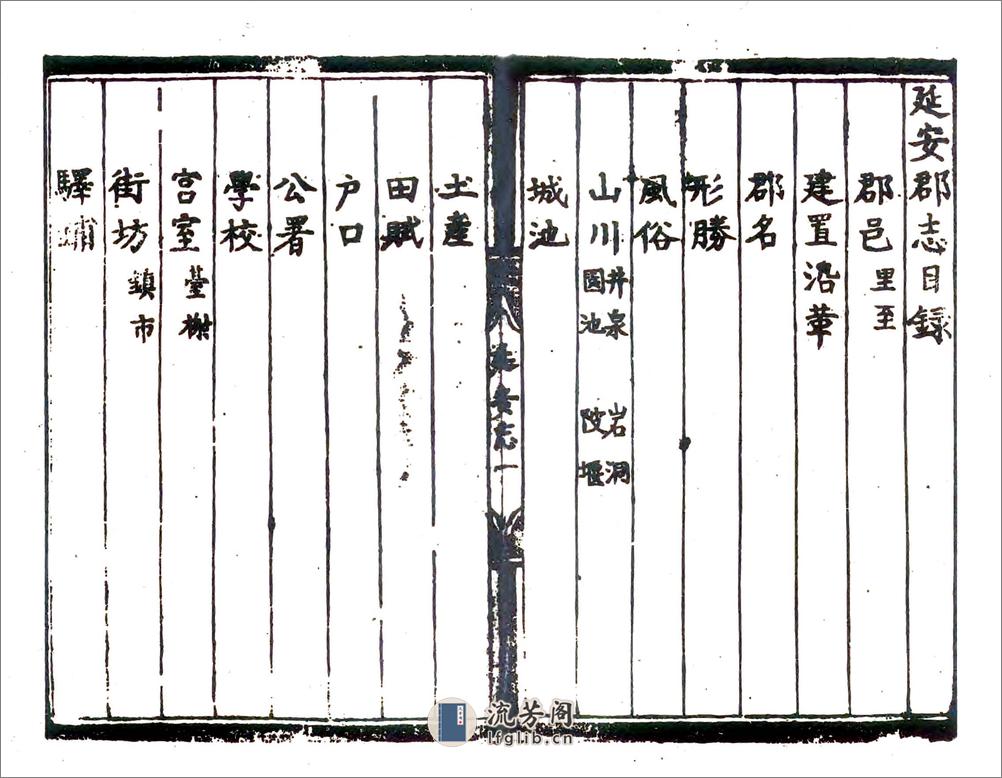 延安郡志目録
郡邑 里至
建置沿革
郡名
形勝
風俗
山川 井泉 園池 岩洞 陂堰
城池
延安志一
土產
田賦
户口
公署
學校
宮室 臺榭
街坊 鎮市
驛鋪
流芳阁
lfglib.cn